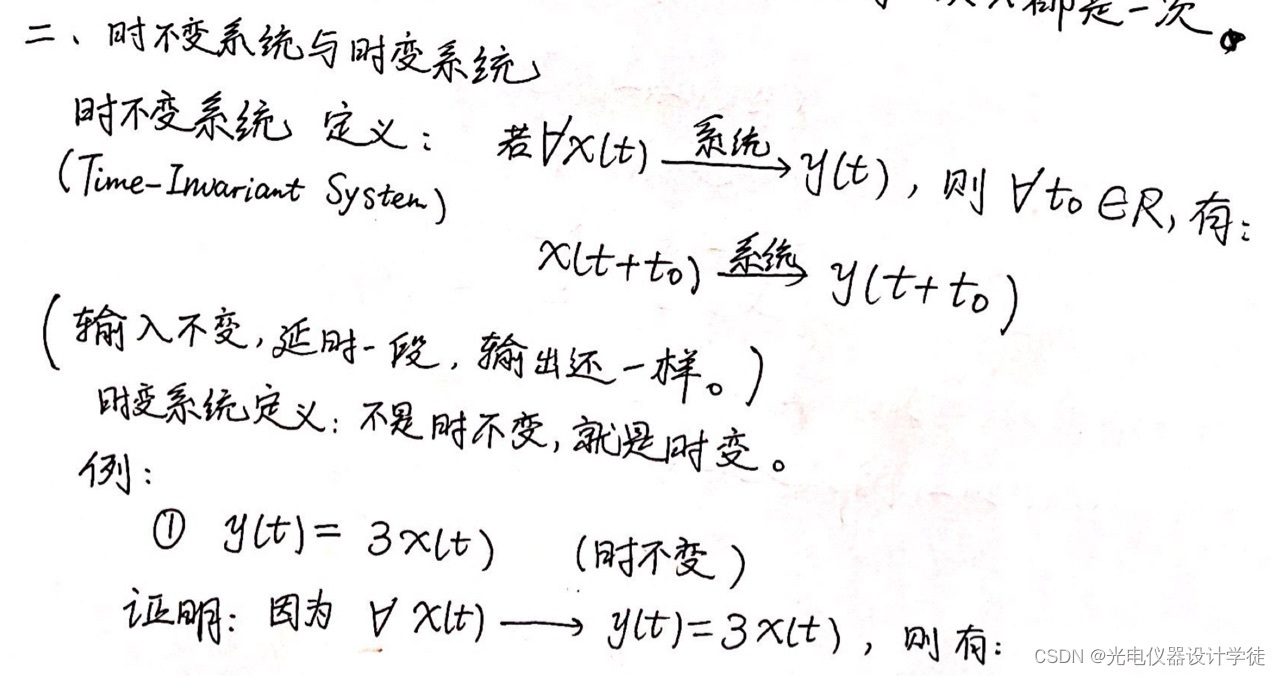 都是一次。
二、时不变系统与时变系统
时不变系统 定义: 若∀x(t) 系统→ y(t), 则 ∀t₀∈R, 有:
(Time-Invariant System)
x(t+t₀) 系统→ y(t+t₀)
(输入不变,延时一段,输出还一样。)
时变系统定义: 不是时不变,就是时变。
例:
① y(t)= 3x(t) (时不变)
证明: 因为 ∀ x(t) → y(t)=3x(t), 则有:
CSDN @光电仪器设计学徒